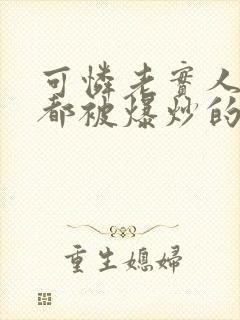 可憐老實人
都被爆炒的
重生媳婦